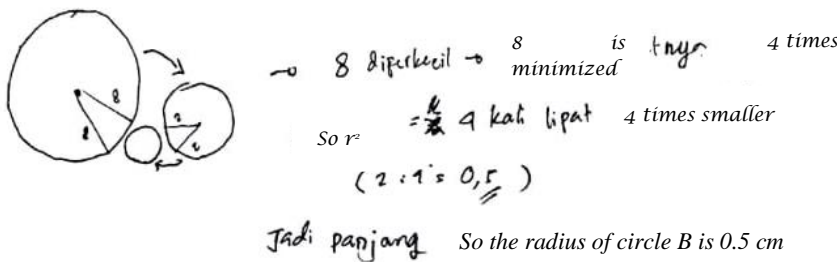 8
8
2
2
→ 8 diperkecil → 8 is minimized 4 times
= 4 kali lipat 4 times smaller
So r²
(2 : 4 = 0,5)
Jadi panjang So the radius of circle B is 0.5 cm